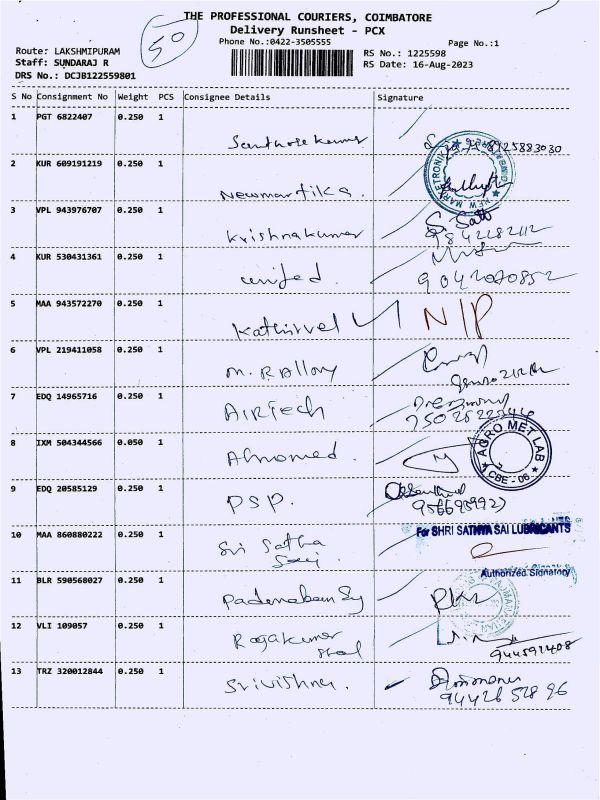 THE PROFESSIONAL COURIERS, COIMBATORE
Delivery Runsheet - PCX
Phone No.:0422-3505555
Page No.:1
50
Route: LAKSHMIPURAM
Staff: SUNDARAJ R
DRS No.: DCJB122559801
RS No.: 1225598
RS Date: 16-Aug-2023
S No Consignment No Weight PCS Consignee Details Signature
1 PGT 6822407 0.250 1
Santhosekumar 8925883030
2 KUR 609191219 0.250 1
Newmartika. NEW MARKETRONIKA
3 VPL 943976707 0.250 1
Krishnakumar
4 KUR 530431361 0.250 1
united.
5 MAA 943572270 0.250 1
Kathirvel N/P
6 VPL 219411058 0.250 1
M. RAlloy
7 EDQ 14965716 0.250 1
AIRTech
8 IXM 504344566 0.050 1
Almomed. AGRO MET LAB CBE - 06
9 EDQ 20585129 0.250 1
PSP.
10 MAA 860880222 0.250 1
For SHRI SATHYA SAI LUBRICANTS
Sri Satha
Sai
Authorized Signatory
11 BLR 590568027 0.250 1
12 VLI 109057 0.250 1
Rajakumar
13 TRZ 320012844 0.250 1
Srivishnu.
94426 528 96